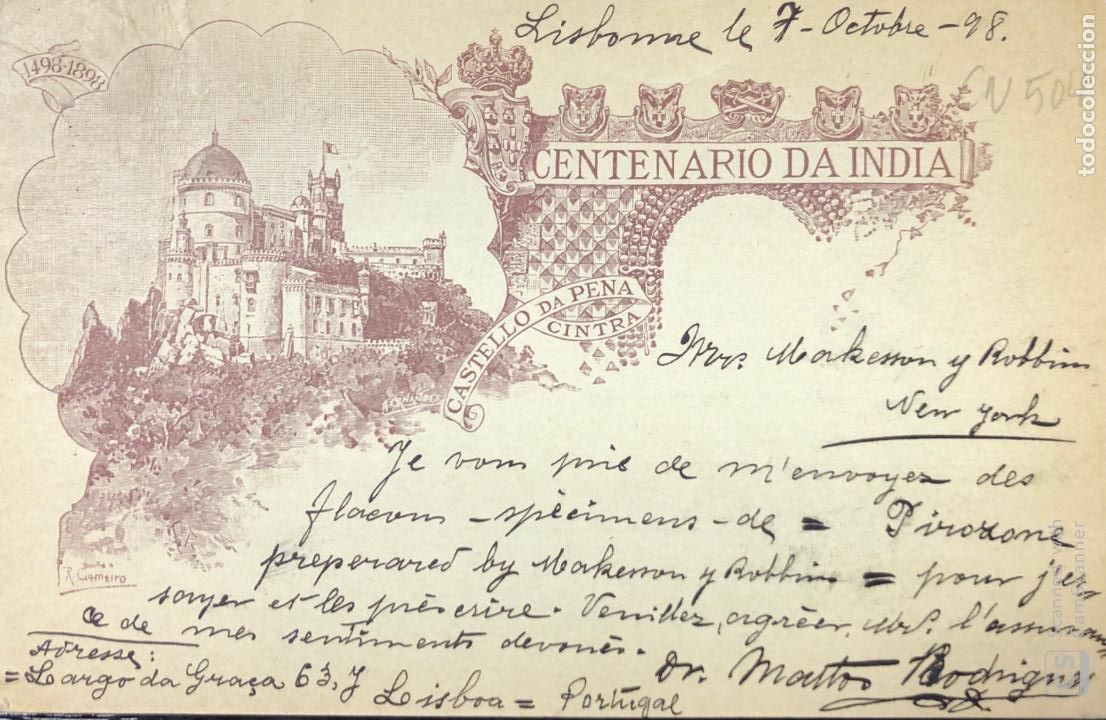 Lisbonne le 7-Octobre-98.
1498-1898
CN 504
CENTENARIO DA INDIA
CASTELLO DA PENA
CINTRA
FERNANDES
R. Gameiro
Mrs. Makesson y Robbins
New York
Je vous prie de m'envoyer des
flacons-spècimens-de = Pirozone
preperared by Makesson y Robbins = pour j'es
sayer et les prèscrire. Veuillez, agrèer, Mrs. l'assuran
ce de mes sentiments devoués.
Adresse:
= Largo da Graça 63, J Lisboa = Portugal
Dr. Mattos Rodrigues
todocoleccion
Scanned with
CamScanner
CS